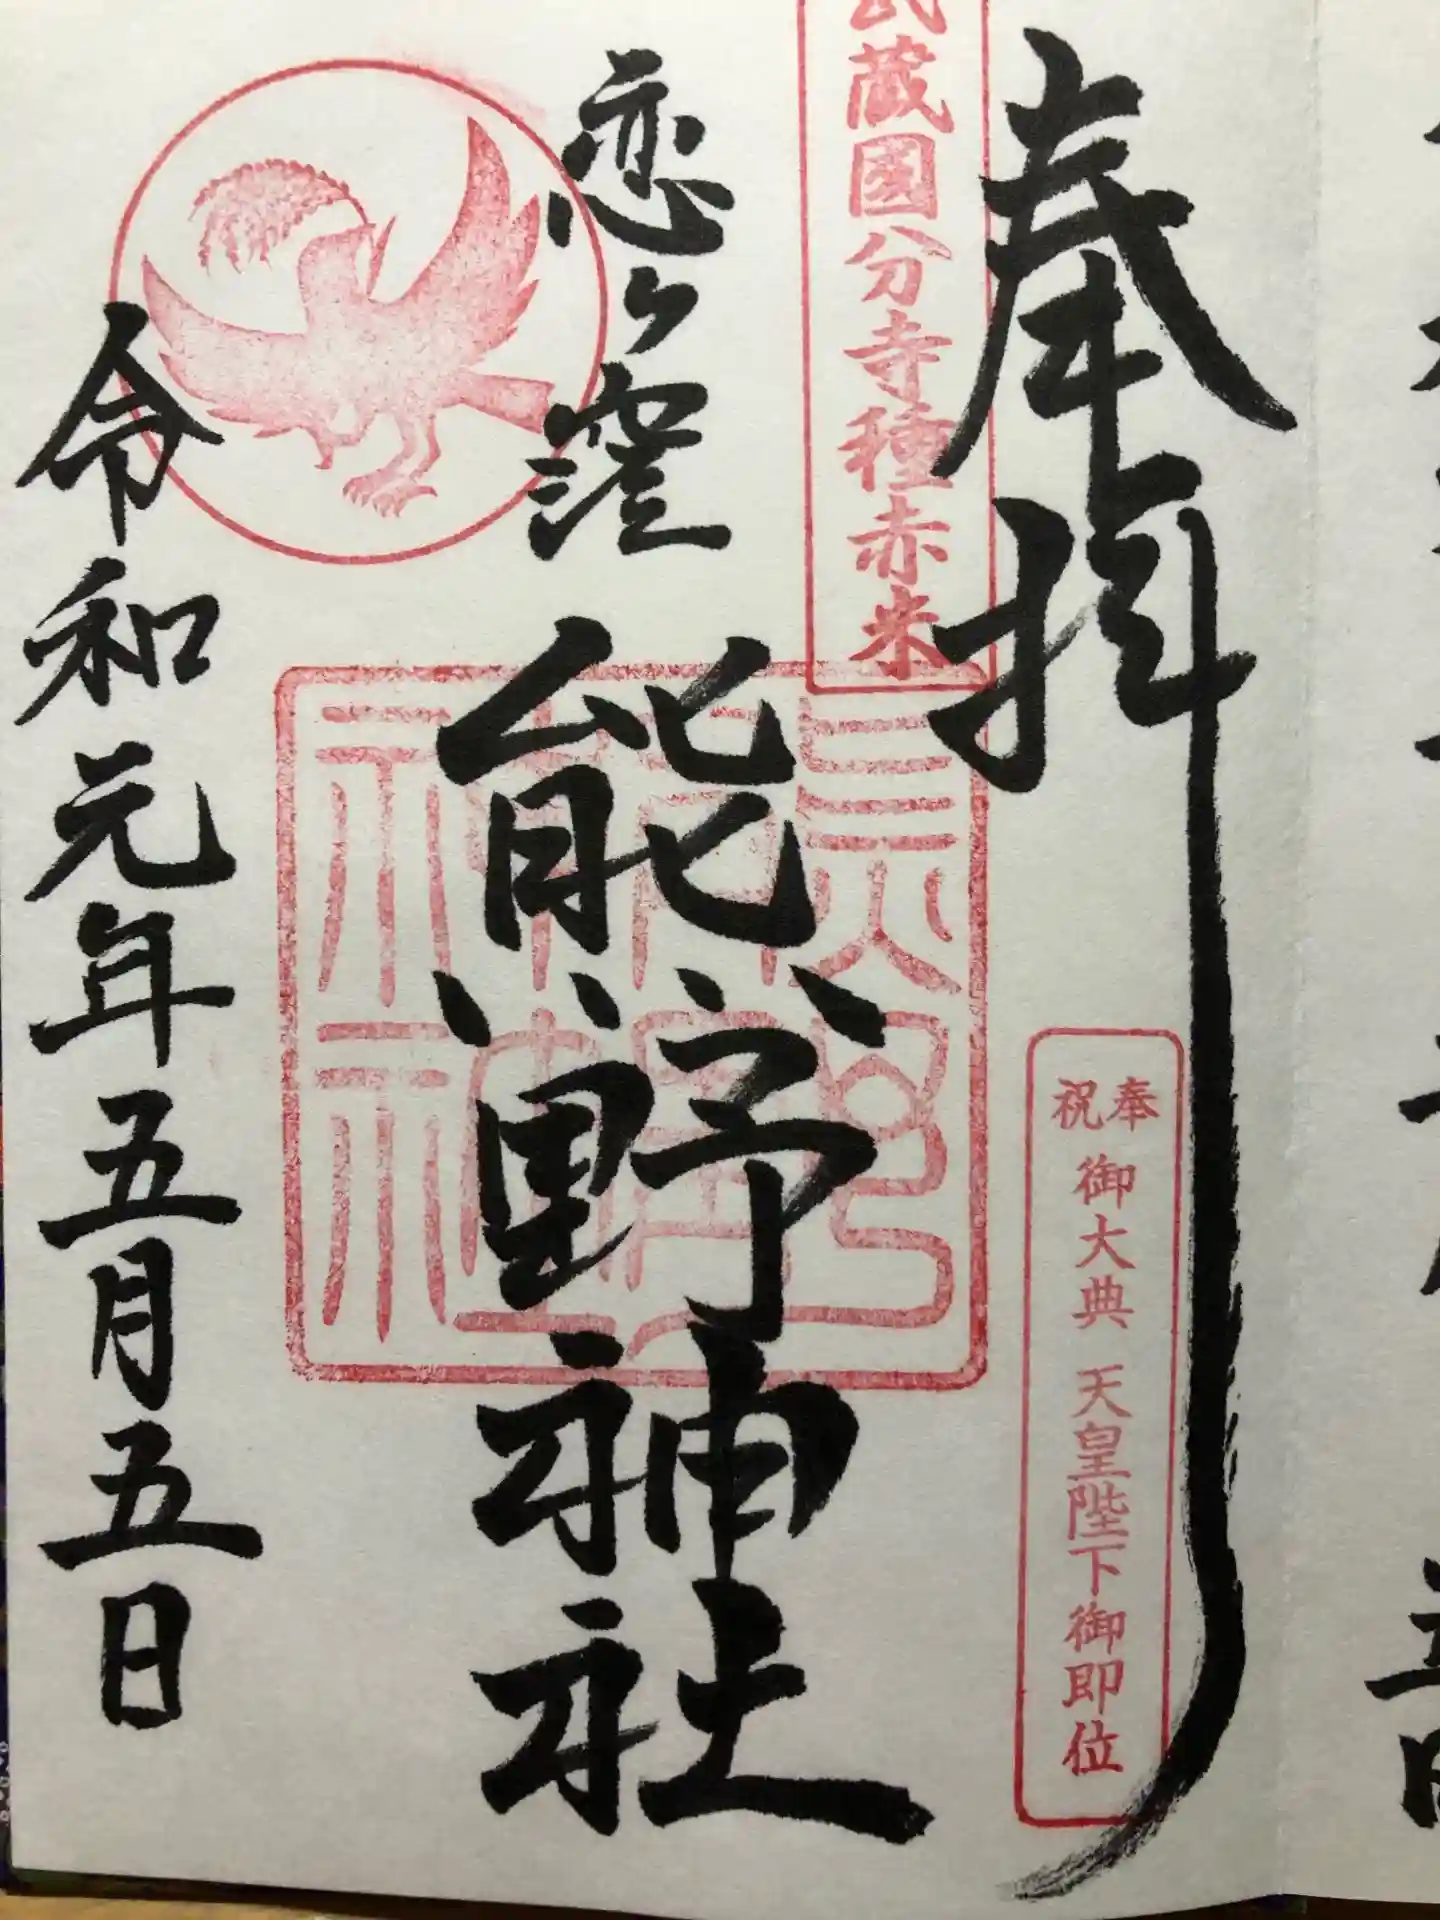 奉拝
武蔵國分寺種赤米
奉祝
御大典 天皇陛下御即位
恋ヶ窪
熊野神社
令和元年五月五日